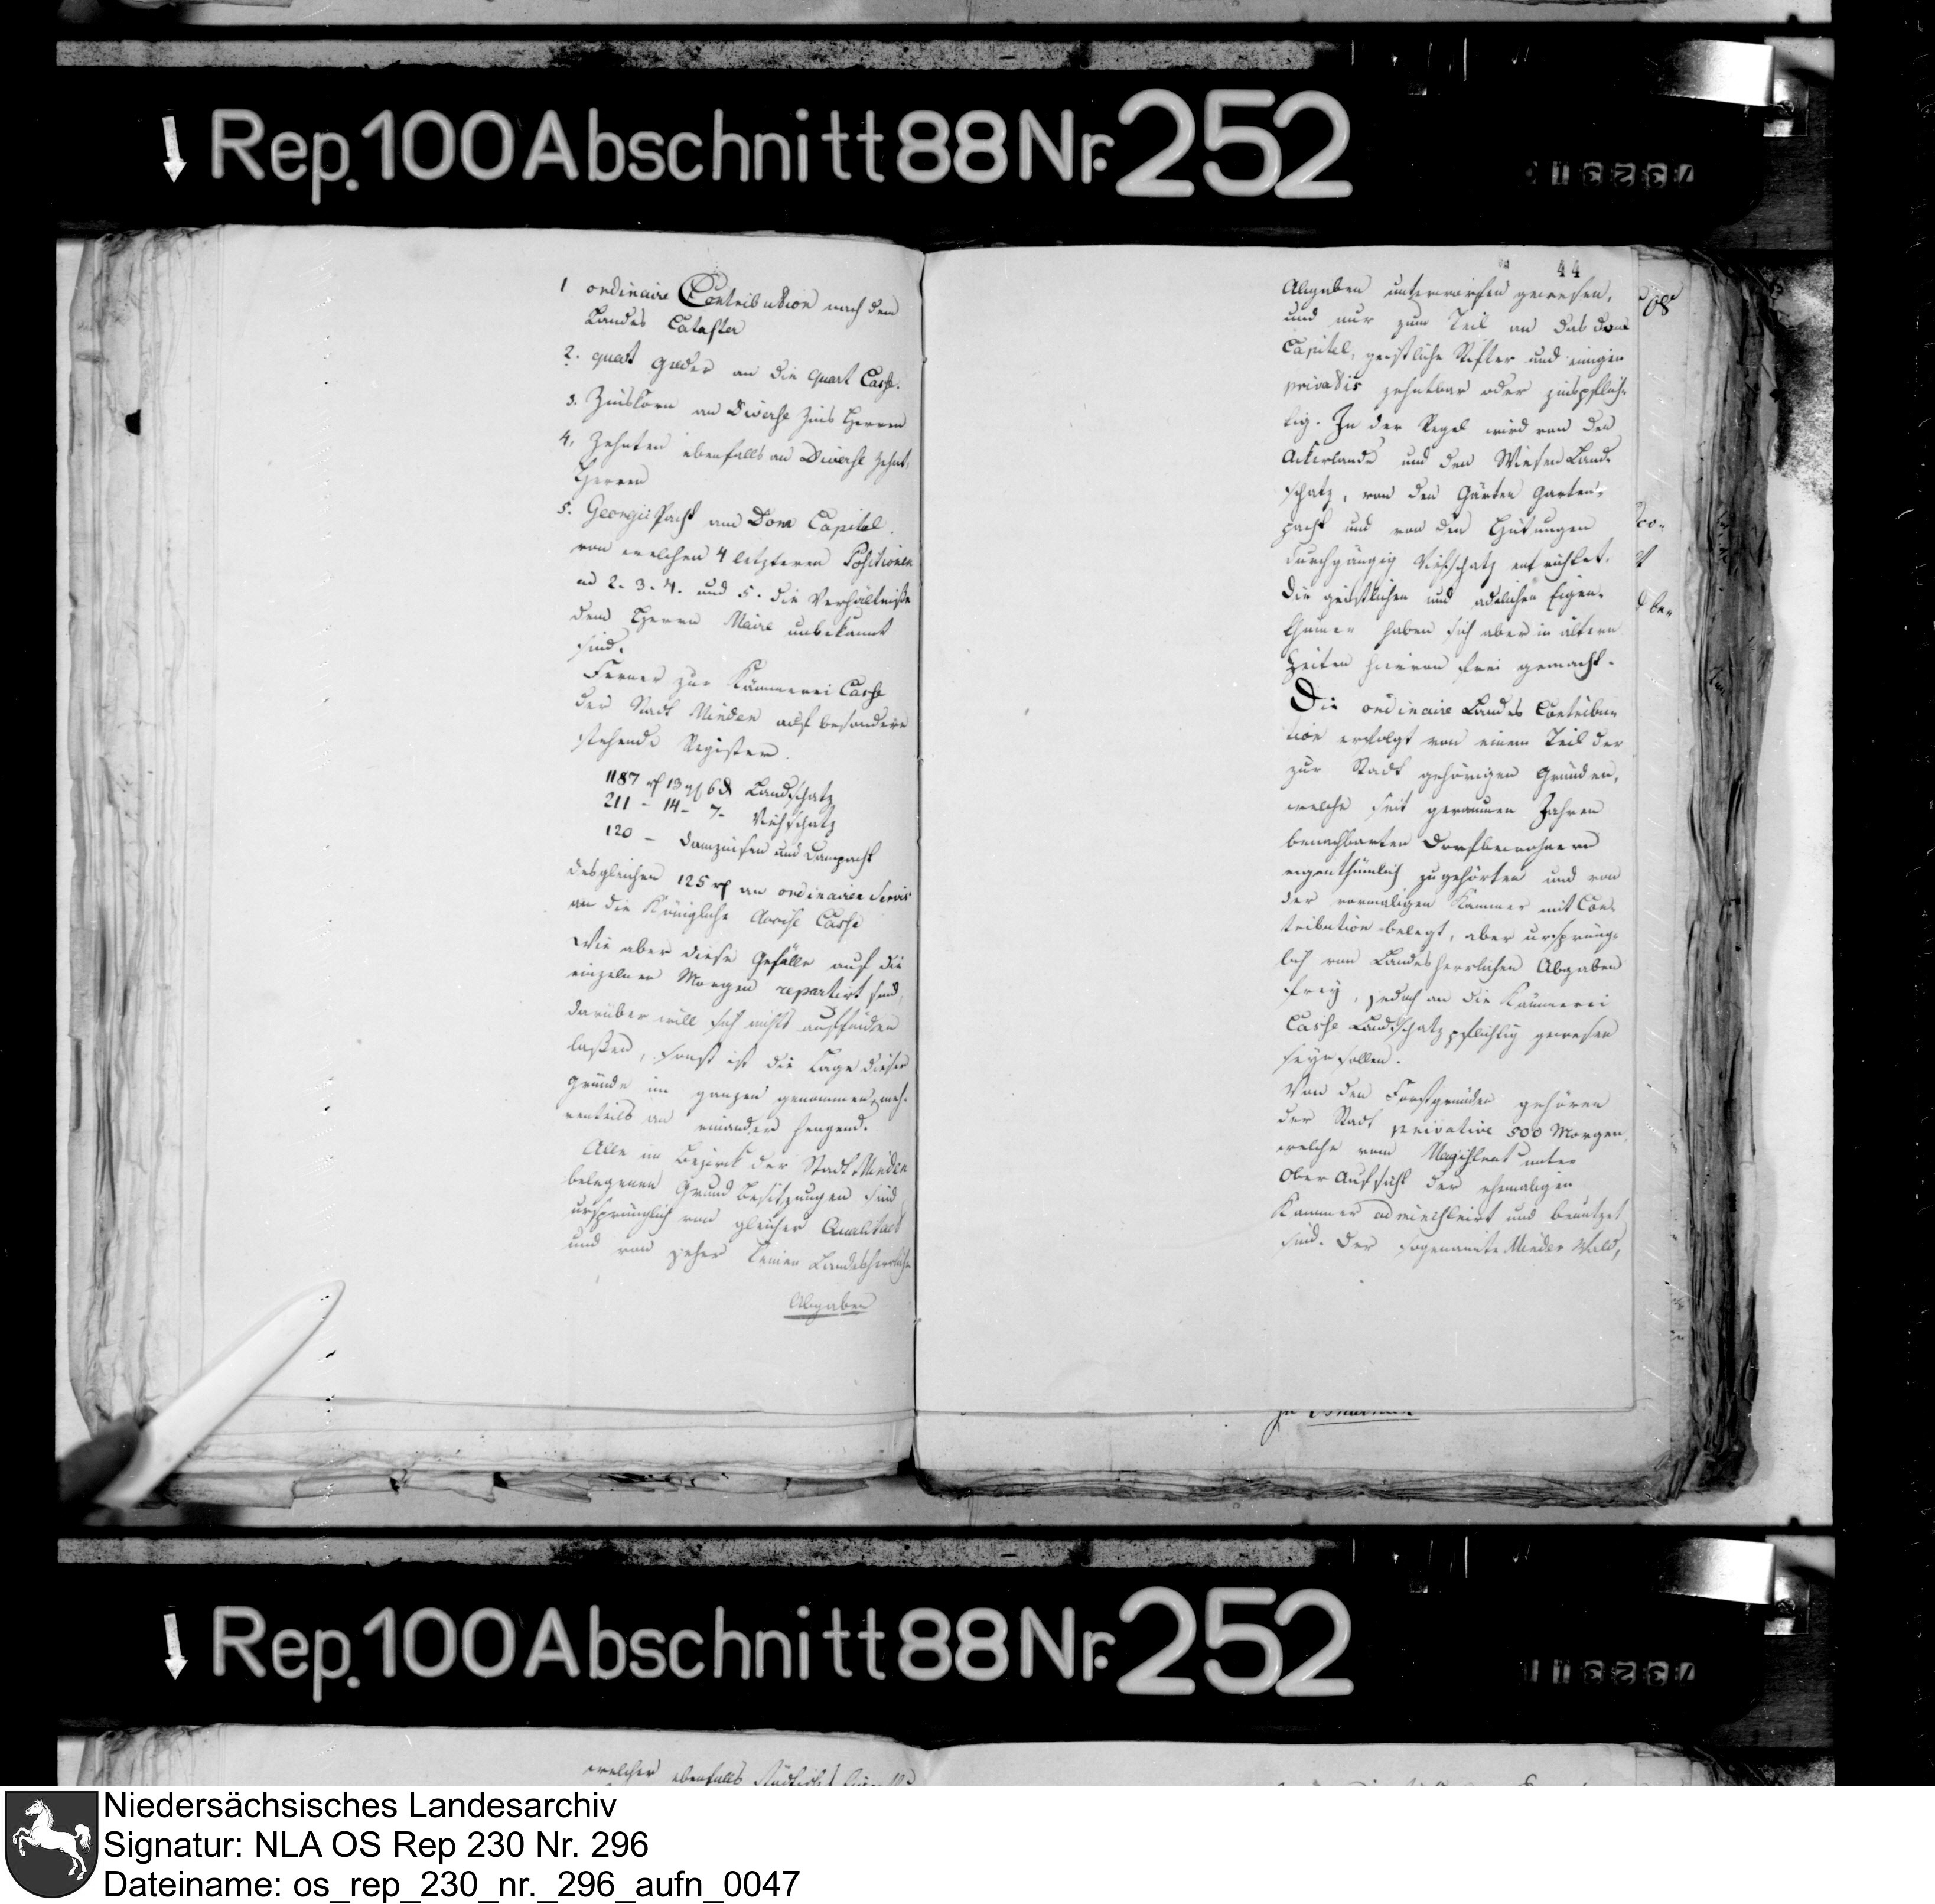 Rep. 100 Abschnitt 88 Nr. 252
1 ordinaire Contribution nach dem
Landes Cataster
2. quart Gelder an die quart Casse.
3. Zinskorn an Diverse Zins Herren
4. Zehnten ebenfalls an Diverse Zehnt,
Herren
5. Georgii Pacht am Dom Capitel.
von welchen 4 letzteren Positionen
ad 2. 3. 4. und 5. die Verhältniße
dem Herrn Maire unbekannt
sind.
Ferner zur Kämmerei Casse
der Stadt Minden auf besondere
stehende Register.
1187 rt 13 gl 6 d Landschatz
211 - 14 - 7 - Viehschatz
120 - Damzinsen und Dampacht
desgleichen 125 rt an ordinairen Servis
an die Königliche Accise Casse
Wie aber diese Gefälle auf die
einzelnen Morgen repartirt sind,
darüber will sich nichts auffinden
laßen, sonst ist die Lage dieser
Gründe im ganzen genommen meh-
renteils an einander hengend.
Alle im Bezirk der Stadt Minden
belegenen Grund Besitzungen sind
ursprünglich von gleicher Qualitaet
und von jeher keinen Landesherrlich
Abgaben
44
Abgaben unterworfen gewesen,
und nur zum Teil an das Dom
Capitel, geistliche Stifter und einigen
privatis zehntbar oder zinspflich-
tig. In der Regel wird von den
Ackerlande und den Wiesen Land-
schatz, von den Gärten Garten-
pacht und von den Hütungen
durchgängig Viehschatz entrichtet.
Die geistlichen und adelichen Eigen-
thümer haben sich aber in ältern
Zeiten hievon frei gemacht.
Die ordinaire Landes Contribu-
tion erfolgt von einem Teil der
zur Stadt gehörigen Gründen,
welche seit geraumen Jahren
benachbarten Dorfbewohnern
eigenthümlich zugehörten und von
der vormaligen Kammer mit Con-
tribution belegt, aber ursprüng-
lich von Landesherrlichen Abgaben
frey, jedoch an die Kämmerei
Casse Landschatz pflichtig gewesen
seyn sollen.
Von den Forstgründen gehören
der Stadt privative 500 Morgen,
welche vom Magistrat unter
Ober Aufsicht der ehemaligen
Kammer administrirt und benutzet
sind. Der sogenannte Minder Wald,
Rep. 100 Abschnitt 88 Nr. 252
welcher ebenfalls
Niedersächsisches Landesarchiv
Signatur: NLA OS Rep 230 Nr. 296
Dateiname: os_rep_230_nr._296_aufn_0047